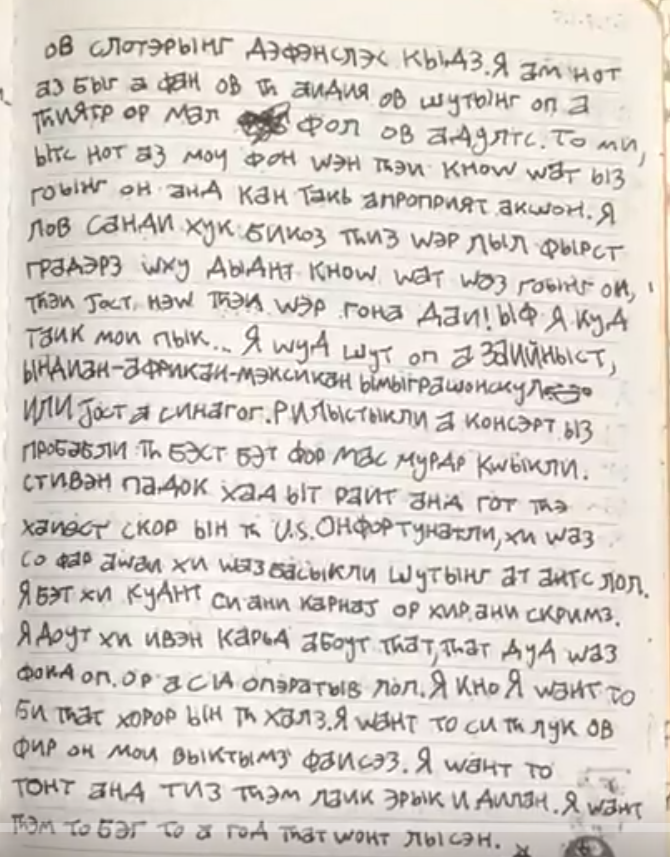 ОВ СЛОТЭРЫНГ ДЭФЭНСЛЭС КЫДЗ. Я ам НОТ
аЗ БЫГ а фаН ОВ Th аИДИЯ ОВ ШУТЫНГ ОП а
ThИЯТР ОР МаЛ ФОЛ ОВ аДУЛТС. ТО МИ,
ЫТС НОТ аЗ МОЧ ФОН WЭН ThЭИ KNOW WаТ ЫЗ
ГОЫНГ ОН аНД КаН ТаКЬ аПРОПРИЯТ аКШОН. Я
ЛОВ СаНДИ ХУК БИКОЗ ThИЗ WЭР ЛЫЛ ФЫРСТ
ГРаДЭРЗ WХУ ДЫДНТ KNOW WаТ WаЗ ГОЫНГ ОН,
ThЭИ JОСТ НЭW ThЭИ WЭР ГОНа ДаИ! ЫФ Я КУД
ТаИК МОИ ПЫК... Я WУД ШУТ ОП а ЗаИЙНЫСТ,
ЫНДИаН-аФРИКаН-МЭКСИКаН ЫМЫГРаШОНСКУЛ
ИЛИ JОСТ а СИНаГОГ. РИЛЫСТЫКЛИ а КОНСЭРТ ЫЗ
ПРОБаБЛИ Th БЭСТ БЭТ ФОР МаС МУРДР КWЫКЛИ.
СТИВЭН ПаДОК ХаД ЫТ РаИТ аНД ГОТ ThЭ
ХаИЭСТ СКОР ЫН Th U.S. ОНФОРТУНаТЛИ, ХИ WаЗ
СО ФаР аWаИ ХИ WаЗ БаСЫКЛИ ШУТЫНГ аТ аНТС ЛОЛ.
Я БЭТ ХИ КУДНТ СИ аНИ КаРНаJ ОР ХИР аНИ СКРИМЗ.
Я ДОУТ ХИ ИВЭН КаРЬД аБОУТ ThаТ, ThаТ ДУД WаЗ
ФОКД ОП. ОР а СІА ОПЭРаТЫВ ЛОЛ. Я КНО Я WаНТ ТО
БИ ThаТ ХОРОР ЫН Th ХаЛЗ. Я WаНТ ТО СИ Th ЛУК ОВ
ФИР ОН МОИ ВЫКТЫМЗ ФаИСЭЗ. Я WаНТ ТО
ТОНТ аНД ТИЗ ThЭМ ЛаИК ЭРЫК И ДИЛаН. Я WаНТ
ThЭМ ТО БЭГ ТО а ГОД ThаТ WОНТ ЛЫСЭН.